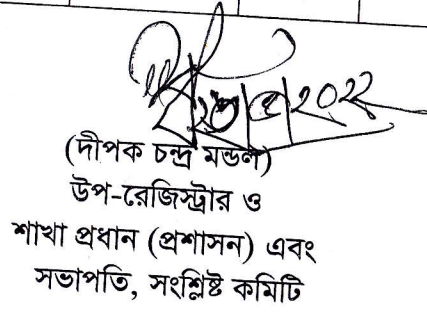 (দীপক চন্দ্র মন্ডল)
উপ-রেজিস্ট্রার ও
শাখা প্রধান (প্রশাসন) এবং
সভাপতি, সংশ্লিষ্ট কমিটি